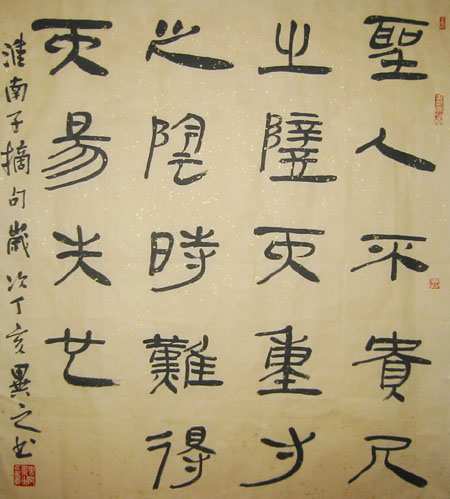 聖人不貴尺
之璧而重寸
之陰時難得
而易失也
淮南子摘句歲次丁亥異之书